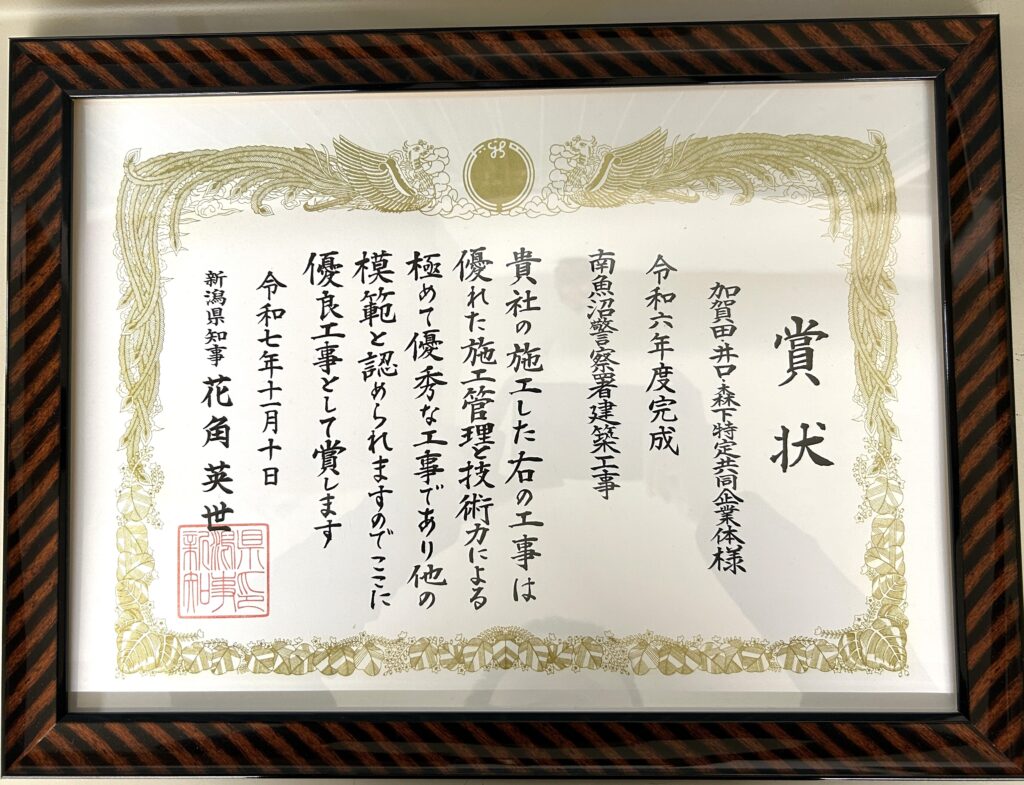 賞状
加賀田・井口・森下特定共同企業体様
令和六年度完成
南魚沼警察署建築工事
貴社の施工した右の工事は
優れた施工管理と技術力による
極めて優秀な工事であり他の
模範と認められますのでここに
優良工事として賞します
令和七年十一月十日
新潟県知事 花角英世
新潟県知事印